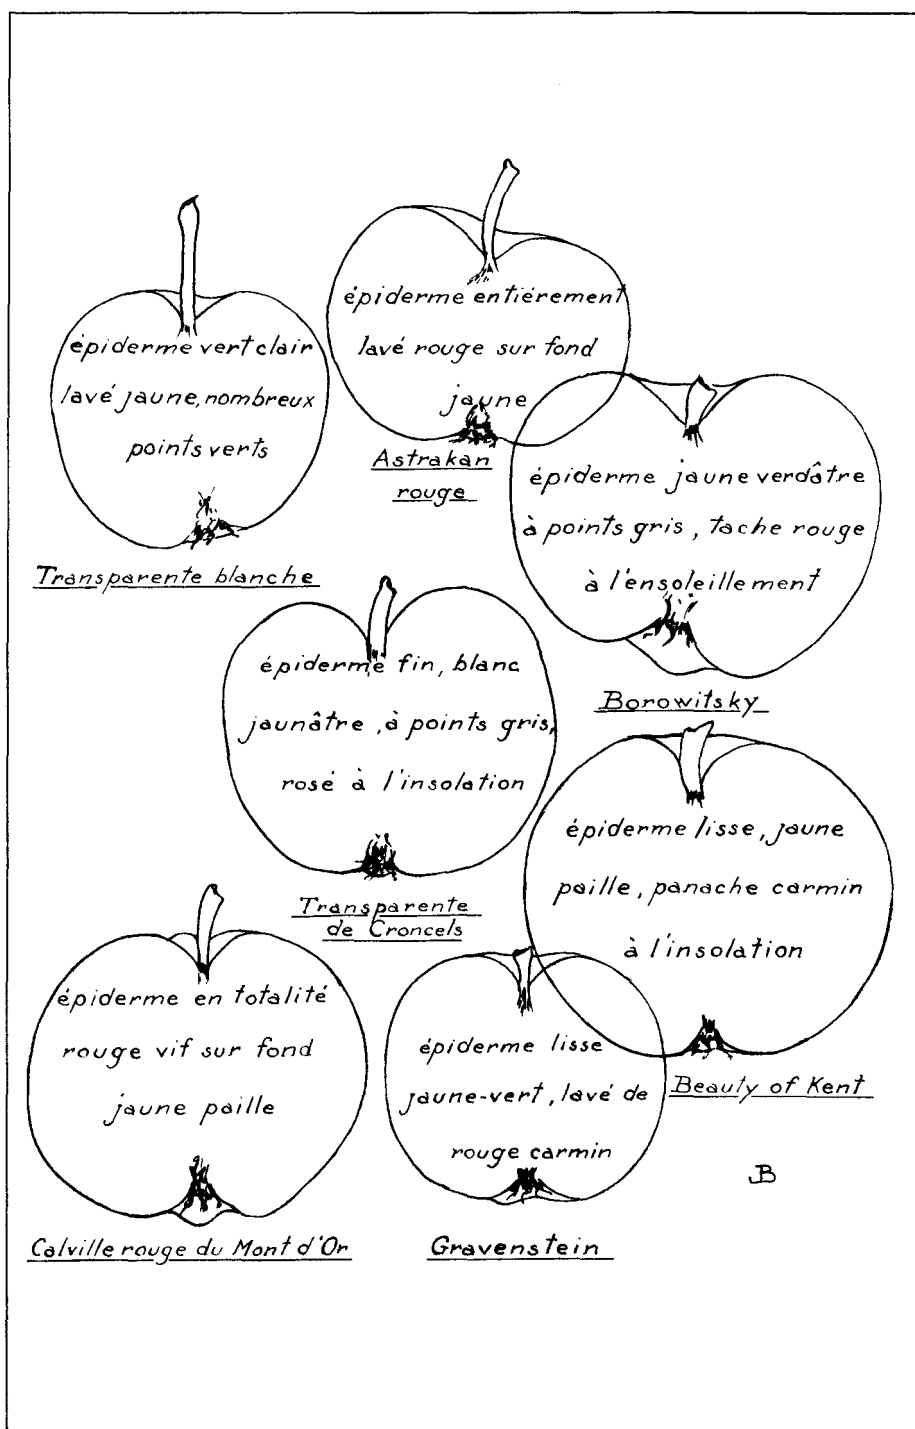 épiderme vert clair
lavé jaune, nombreux
points verts
Transparente blanche
épiderme entiérement
lavé rouge sur fond
jaune
Astrakan
rouge
épiderme jaune verdâtre
à points gris, tache rouge
à l'ensoleillement
Borowitsky
épiderme fin, blanc
jaunâtre, à points gris,
rosé à l'insolation
Transparente
de Croncels
épiderme lisse, jaune
paille, panache carmin
à l'insolation
Beauty of Kent
épiderme en totalité
rouge vif sur fond
jaune paille
Calville rouge du Mont d'Or
épiderme lisse
jaune-vert, lavé de
rouge carmin
Gravenstein
JB